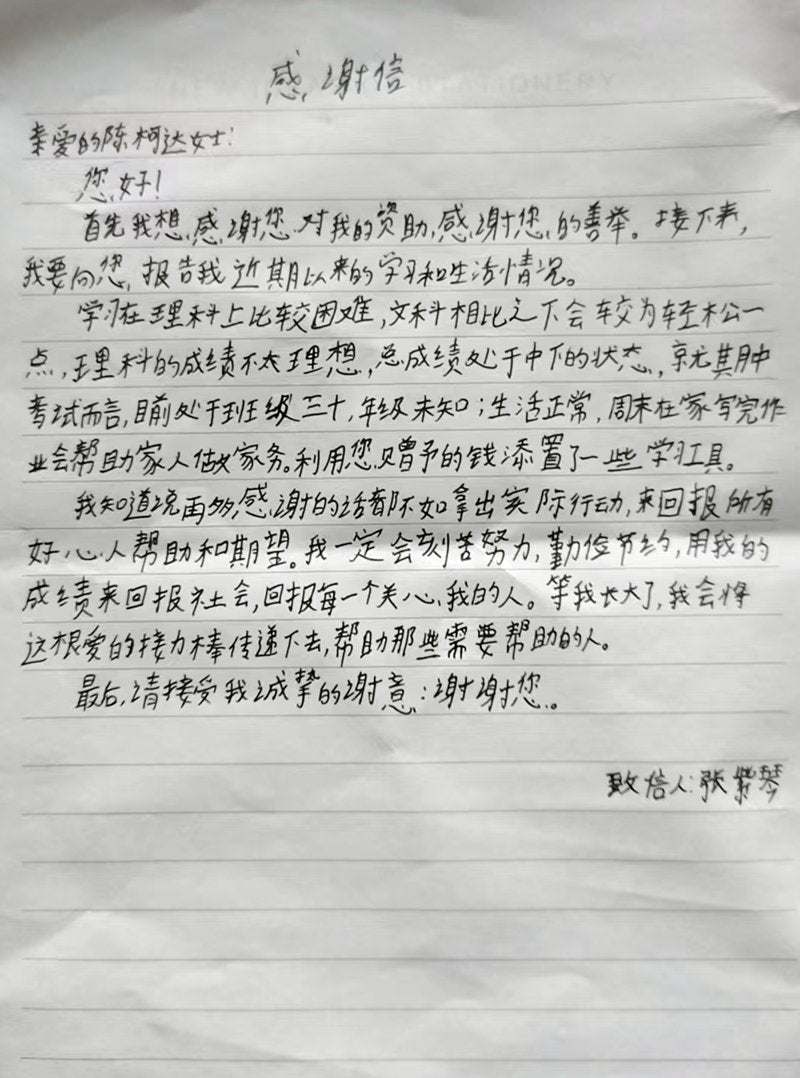 感谢信
亲爱的陈柯达女士：
您好！
首先我想感谢您对我的资助，感谢您的善举。接下来，
我要向您报告我近期以来的学习和生活情况。
学习在理科上比较困难，文科相比之下会较为轻松一
点，理科的成绩不太理想，总成绩处于中下的状态，就其期中
考试而言，目前处于班级三十，年级未知；生活正常，周末在家写完作
业会帮助家人做家务。利用您赠予的钱添置了一些学习工具。
我知道说再多感谢的话都不如拿出实际行动，来回报所有
好心人帮助和期望。我一定会刻苦努力，勤俭节约，用我的
成绩来回报社会，回报每一个关心我的人。等我长大了，我会将
这根爱的接力棒传递下去，帮助那些需要帮助的人。
最后，请接受我诚挚的谢意：谢谢您。
致信人：张紫琴